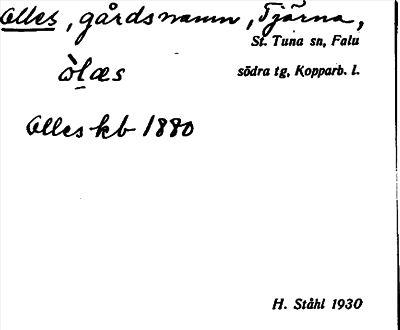 Olles, gårdsnamn, Tjärna,
St. Tuna sn, Falu
södra tg, Kopparb. l.
òl̠æs
Olles kb 1880
H. Ståhl 1930